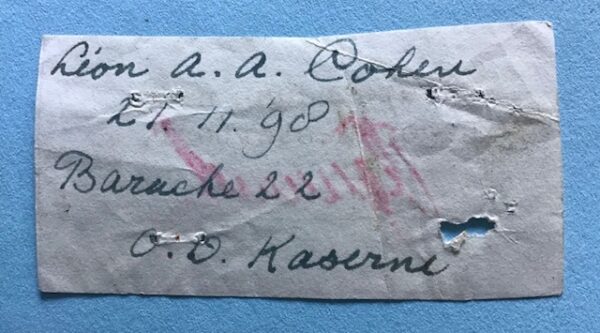 Léon A. A. Cohen
21. 11. '98
Barache 22
O. D. Kaserne